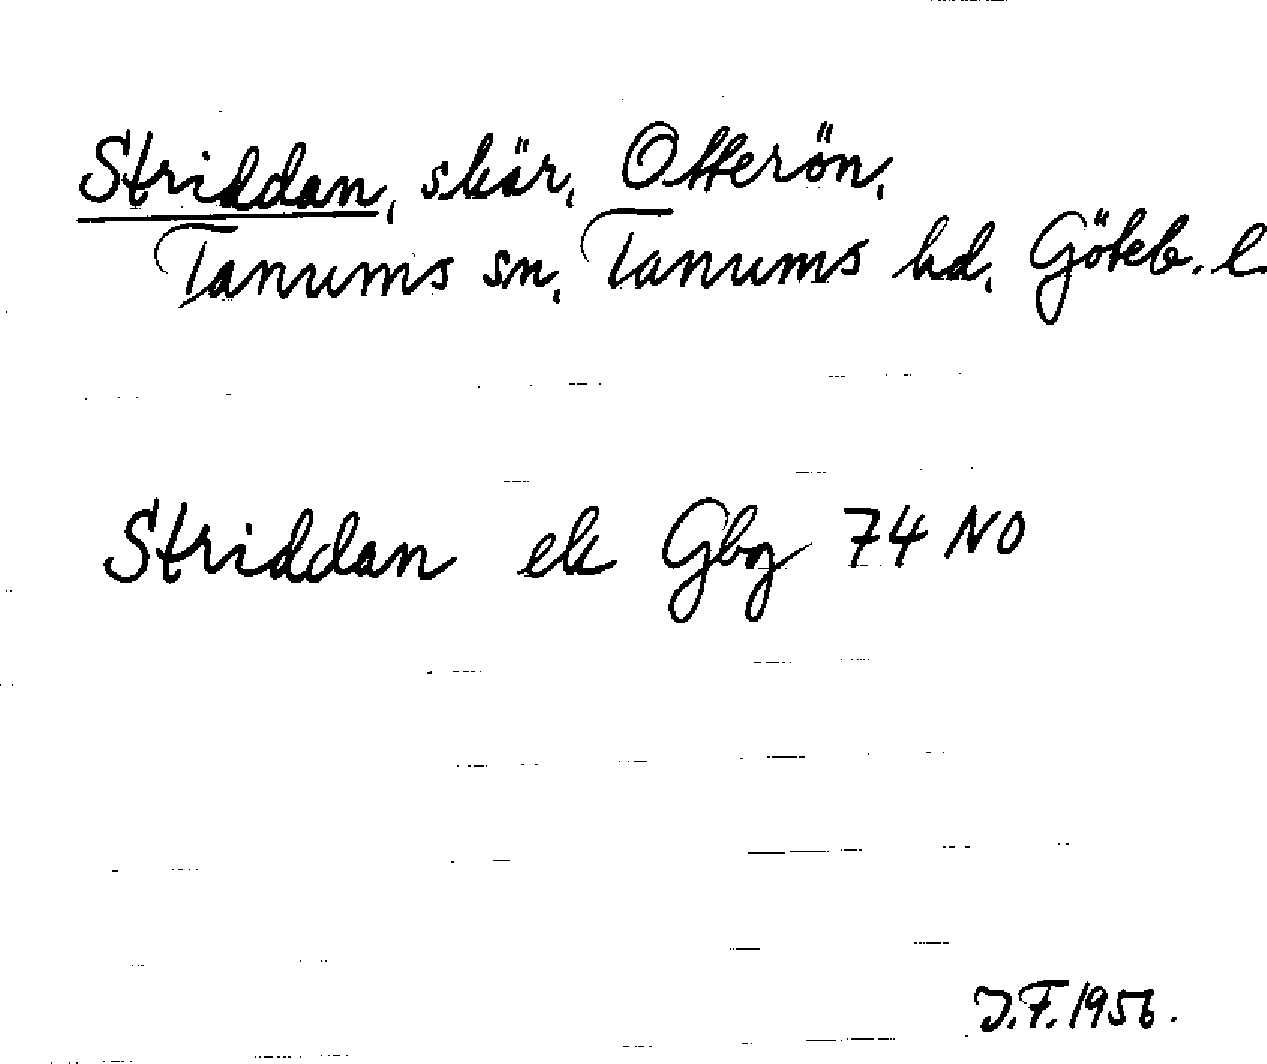 Striddan, skär, Otterön,
Tanums sn, Tanums hd, Göteb. l
Striddan ek Gbg 74 NO
J.F. 1956.